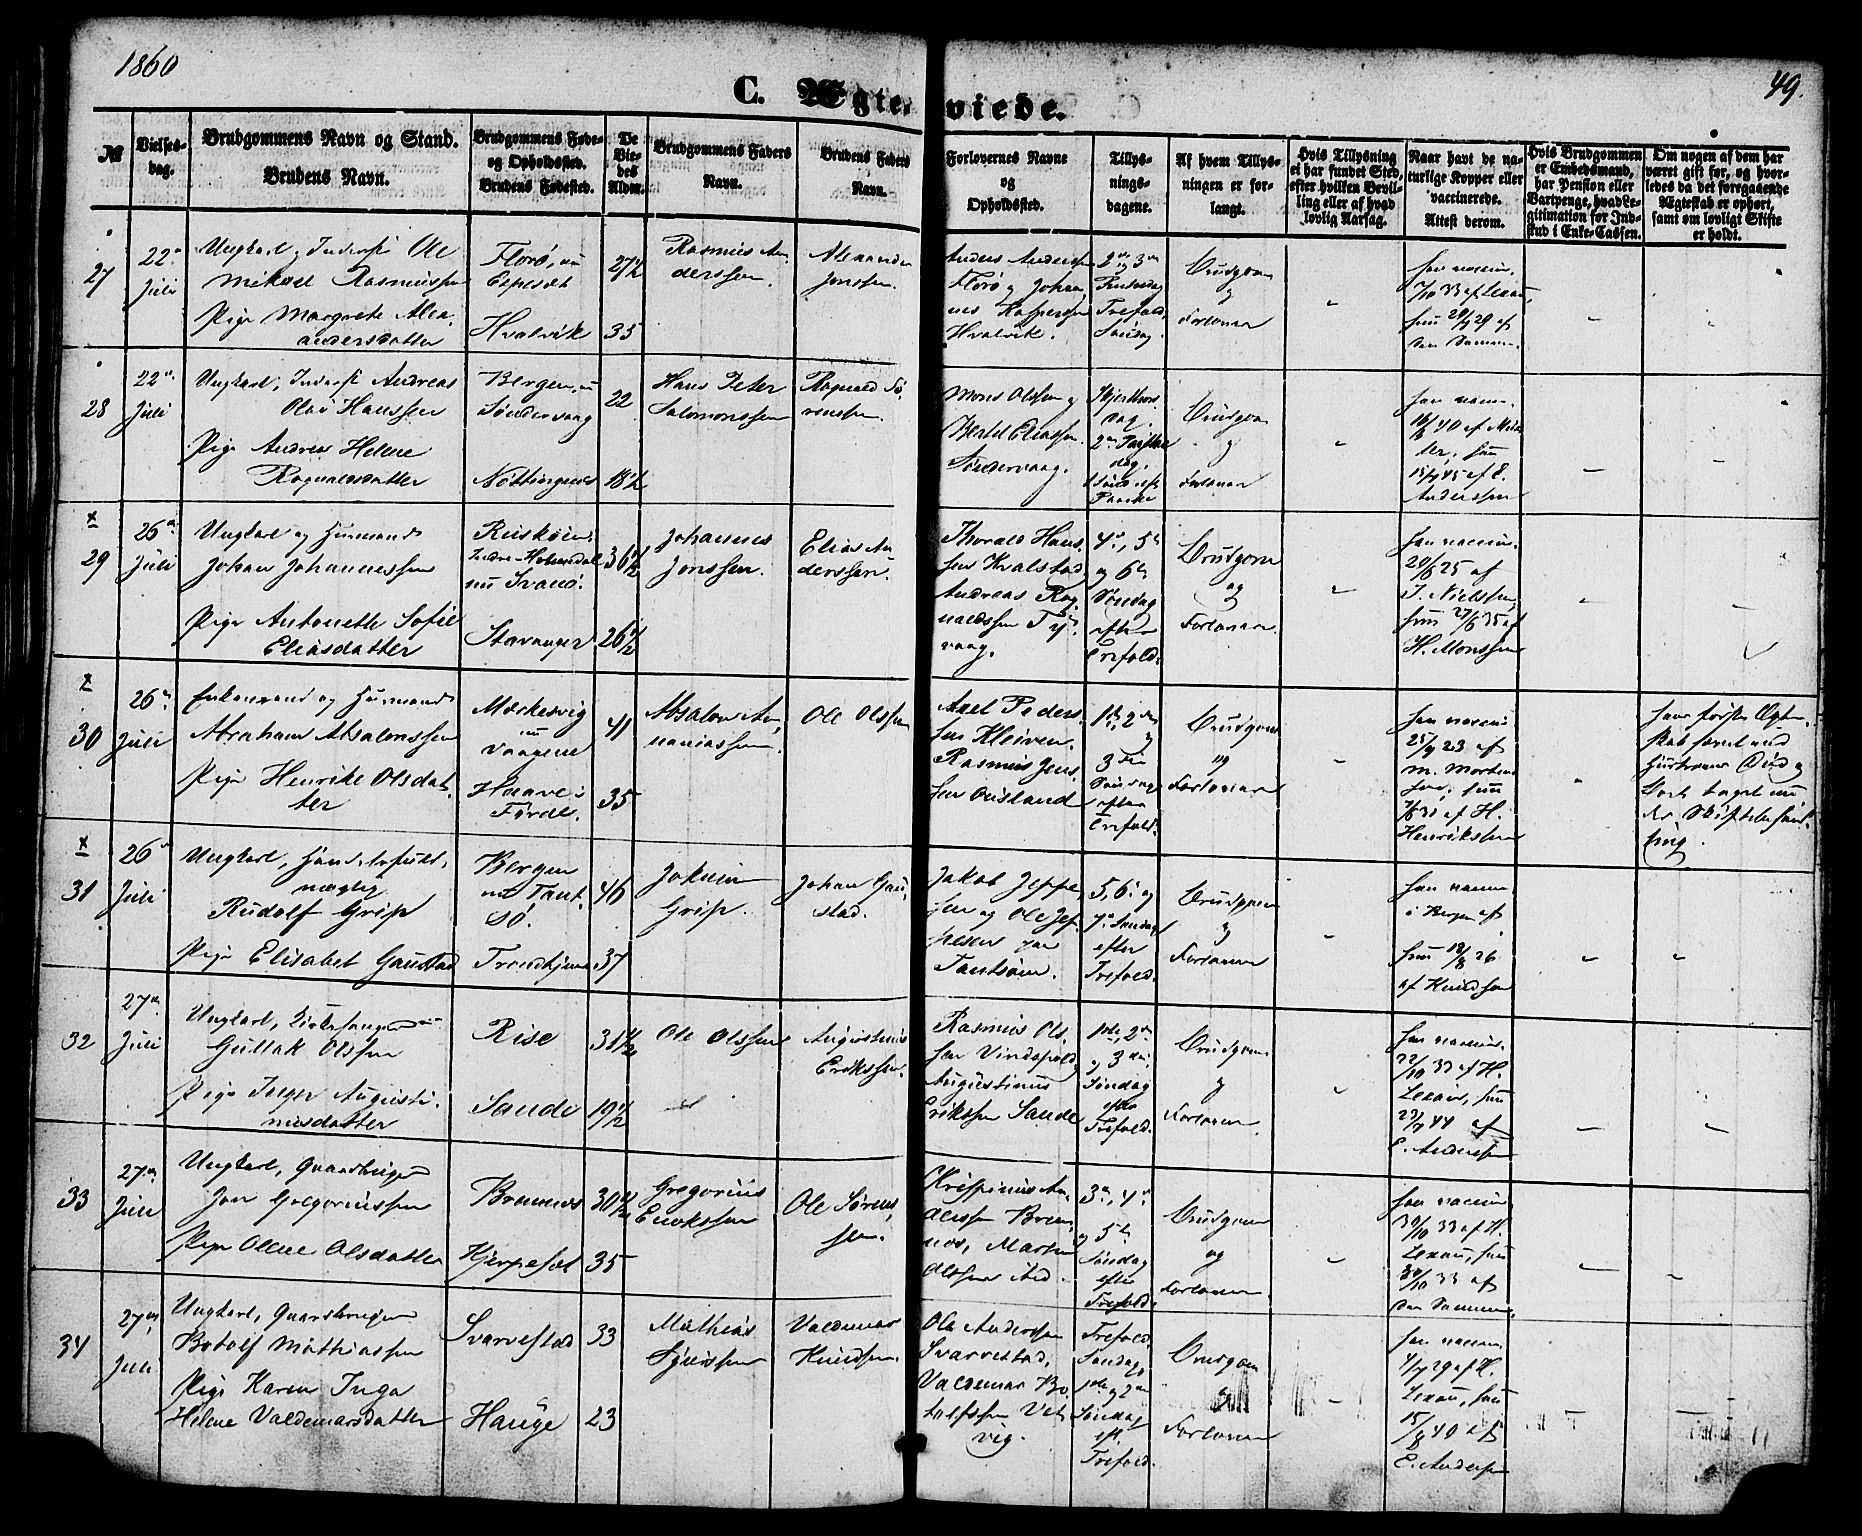 1860
49.
C. Ægteviede.
№
Vielses-
dag.
Brudgommens Navn og Stand.
Brudens Navn.
Brudgommens Føde-
og Opholdssted.
Brudens Fødested.
De
Vie-
des
Alder.
Brudgommens Faders
Navn.
Brudens Faders
Navn.
Forlovernes Navne
og
Opholdssted.
Tillys-
nings-
dagene.
Af hvem Tillys-
ningen er for-
langt.
Hvis Tillysning
ei har fundet Sted,
efter hvilken Bevil-
ling eller af hvad
lovlig Aarsag.
Naar havt de na-
turlige Kopper eller
vaccinerede.
Attest derom.
Hvis Brudgommen
er Embedsmand,
har Pension eller
Vartpenge, hvad Le-
gitimation for Ind-
skud i Enke-Cassen.
Om nogen af dem har
været gift før, og hvor-
ledes da det foregaaende
Ægteskab er ophørt,
samt om lovligt Skifte
er holdt.
27
22
Juli
Ungkarl, Inderst Ole
Mikael Rasmussen
Pige Margrete Alex-
andersdatter
Florø, nu
Espeset
Hvalvik
27½
35
Rasmus An-
derssen.
Alexander
Jonssen.
Anders Anderssen
Florø og Johan-
nes Kasperssen
Hvalvik.
2den og 3die
Pintsedag
Trefold.
Søndag.
Brudgom
og
Forlover
han vaccin.
7/10 33 af Lexau,
hun 29/7 29 af
den Samme.
28
22
Juli
Ungkarl, Inderst Andreas
Olai Hanssen
Pige Andrea Helene
Ragnvaldsdatter
Bergen, nu
Søndervaag
Nøttingnes
22
18½
Hans Peter
Salomonssen
Ragnvald Sø-
renssen.
Mons Olssen og
Bertel Eliassen
Søndervaag.
Skjærthors-
dag.
2den Paaske-
dag.
1 Sønd. eft.
Paaske
Brudgom
og
Forlover
10/8 40 af
hun
15/7 45 af E.
Anderssen
x
29
26
Juli
Ungkarl og Huusmand
Johan Johannessen
Pige Antonette Sofie
Eliasdatter
Indre-Holmedal
nu Svanø.
Stavanger
36½
26½
Johannes
Jonssen.
Elias An-
derssen.
Thorald Hans-
sen Kvalstad
Andreas Rag-
naldssen Ty-
vaag.
4de, 5te
og 6te
Søndag
efter
Trefold.
Brudgom
og
Forlover.
han vaccin.
20/6 25 af
I. Nielssen,
hun 27/6 35 af
H. Monssen
x
30
26
Juli
Enkemand og Huusmand
Abraham Absalonssen
Pige Henrike Olsdat-
ter
Mærkesvig
nu
Vaagene
Haave i
Førde.
41
35
Absalon An-
aniassen.
Ole Olssen
Axel Peders-
sen Kleiven.
Rasmus Jens-
sen Ousland
1ste, 2den
og
3die
Søndag
efter
Trefold.
Brudgom
og
Forlover
han vaccin
25/9 23 af
M. Morten-
sen, hun
7/8 31 af H.
Henrikssen
hans første Ægte-
skab hævet ved
Hustruens Død og
Boet taget un-
der Skiftebehand-
ling.
x
31
26
Juli
Ungkarl, Handelsfuld-
mægtig
Rudolf Grip
Pige Elisabet Gaustad
Bergen
nu Tant-
sø.
Trondhjem
46
37
Jokum
Grip.
Johan Gau-
stad.
Jakob Jeppe-
sen og Ole Jep-
pesen paa
Tantsøen.
5, 6te og
7de Søndag
efter
Trefold.
Brudgom
og
Forlover
han vaccin
i Bergen af
hun 18/8 26
af Knudsen
32
27
Juli
Ungkarl, Kirkesanger
Gullak Olssen
Pige Inger Augusti-
nusdatter
Rise
Sande
31½
19½
Ole Olssen
Augustinus
Erikssen.
Rasmus Ols-
sen Vindspold
Augustinus
Erikssen Sande
1ste, 2den
og 3die
Søndag
efter
Trefold.
Brudgom
og
Forlover
han vaccin.
22/10 33 af H.
Lexau, hun
29/7 44 af
E. Anderssen
33
27
Juli
Ungkarl, Gaardbruger
Jon Gregoriussen
Pige Oline Olsdatter
Bremnes
Hjerpeset
30½
35
Gregorius
Enokssen
Ole Sørens-
sen.
Krispinus An-
derssen Brem-
nes, Marten
Olssen ibid.
3die, 4de
og 5te
Søndag
efter
Trefold.
Brudgom
og
Forlover.
han vaccin
30/10 33 af H.
Lexau, hun
30/10 33 af
den Samme.
34
27
Juli
Ungkarl, Gaardbruger
Botolf Mathiassen
Pige Karen Inga
Helene Valdemarsdatter
Svarvestad
Hauge
33
23
Mathias
Sjurssen
Valdemar
Knudsen.
Ole Anderssen
Svarvestad,
Valdemar Bo-
tolfssen Vet-
vig.
Trefold.
Søndag,
1ste og 2den
Søndag
eft.
Trefold.
Brudgom
og
Forlover
han vaccin
4/7 29 af H.
Lexau, hun
15/8 40 af
E. Anderssen